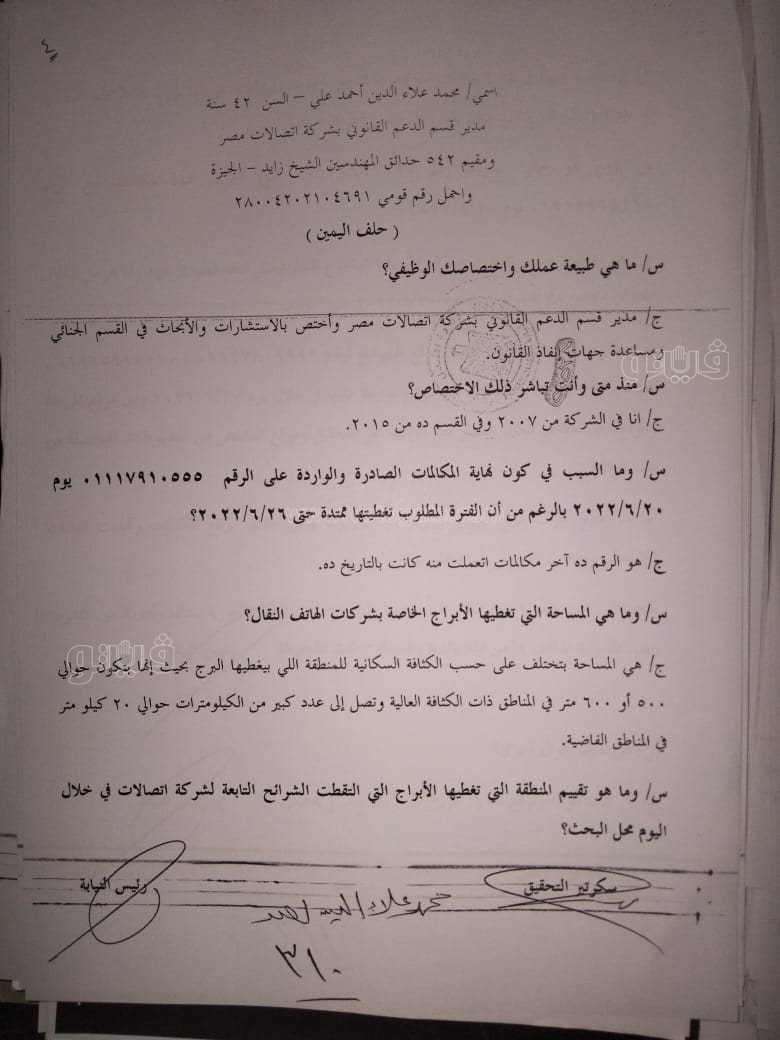 ٤
اسمي/ محمد علاء الدين أحمد علي – السن ٤٢ سنة
مدير قسم الدعم القانوني بشركة اتصالات مصر
ومقيم ٥٤٢ حدائق المهندسين الشيخ زايد – الجيزة
واحمل رقم قومي ٢٨٠٠٤٢٠٢١٠٤٦٩١
( حلف اليمين )
س/ ما هي طبيعة عملك واختصاصك الوظيفي؟
ج/ مدير قسم الدعم القانوني بشركة اتصالات مصر وأختص بالاستشارات والأبحاث في القسم الجنائي
ومساعدة جهات إنفاذ القانون.
س/ منذ متى وأنت تباشر ذلك الاختصاص؟
ج/ انا في الشركة من ٢٠٠٧ وفي القسم ده من ٢٠١٥.
س/ وما السبب في كون نهاية المكالمات الصادرة والواردة على الرقم ٠١١١٧٩١٠٥٥٥ يوم
٢٠٢٢/٦/٢٠ بالرغم من أن الفترة المطلوب تغطيتها ممتدة حتى ٢٠٢٢/٦/٢٦؟
ج/ هو الرقم ده آخر مكالمات اتعملت منه كانت بالتاريخ ده.
س/ وما هي المساحة التي تغطيها الأبراج الخاصة بشركات الهاتف النقال؟
ج/ هي المساحة بتختلف على حسب الكثافة السكانية للمنطقة اللي بيغطيها البرج بحيث إنها بتكون حوالي
٥٠٠ أو ٦٠٠ متر في المناطق ذات الكثافة العالية وتصل إلى عدد كبير من الكيلومترات حوالي ٢٠ كيلو متر
في المناطق الفاضية.
س/ وما هو تقييم المنطقة التي تغطيها الأبراج التي التقطت الشرائح التابعة لشركة اتصالات في خلال
اليوم محل البحث؟
سكرتير التحقيق
رئيس النيابة
محمد علاء الدين أحمد
٣١٠
ڤيتو
ڤيتو